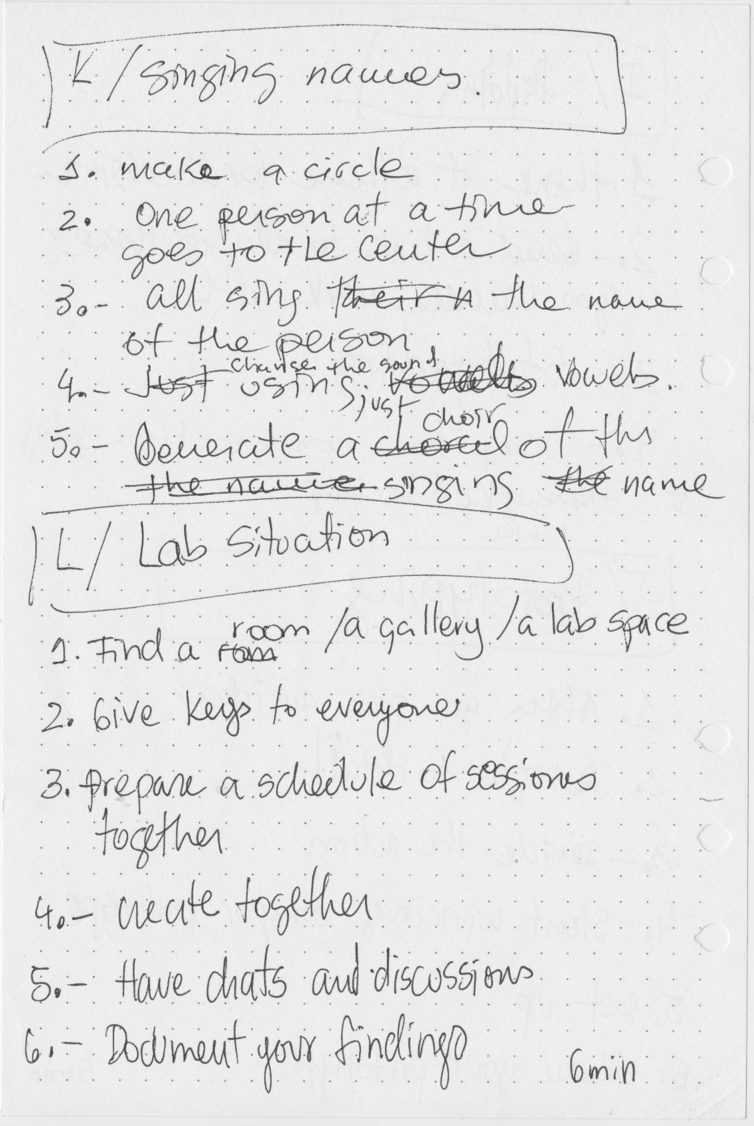 K/ singing names
1. make a circle
2. One person at a time
goes to the center
3.- all sing their n the name
of the person
change the sound
4.- Just using, just vowels vowels.
choir
5.- Generate a choral of the
the name singing the name
L/ Lab Situation
1. Find a room room /a gallery /a lab space
2. Give keys to everyone
3. prepare a schedule of sessiones
together
4.- create together
5.- Have chats and discussions
6.- Document your findings
6min